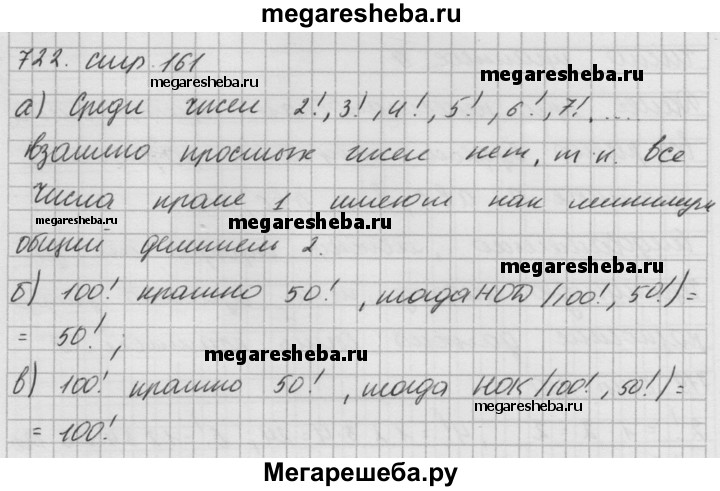 megaresheba.ru
722. стр. 161
megaresheba.ru
а) Среди чисел 2!, 3!, 4!, 5!, 6!, 7!, ....
взаимно простых чисел нет, т.к. все
числа кроме 1 имеют как минимум
megaresheba.ru
megaresheba.ru
общий делитель 2.
б) 100! кратно 50!, тогда НОД (100!, 50!) =
= 50!;
megaresheba.ru
в) 100! кратно 50!, тогда НОК (100!, 50!) =
megaresheba.ru
= 100!
Мегарешеба.ру